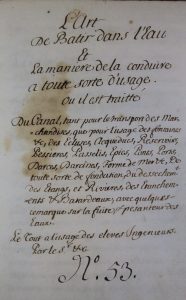 L'Art
De Batir dans L'eau
&
La maniere de la conduire
a toute sorte d'usage.
ou il est traitté
Du Canal, tans pour le transport des Mar-
chandises que pour L'usage des fontaines
&c, des Ecluses, Acqueducs, Reservoirs,
Ponts, Ports,
Batons, Bassins, Forme de Mer, De
toute sorte de fondation, Du dessechem.t
des Etangs, et Rivieres, des
& Batardeaux, avec quelques
remarque sur la fuite, pesanteur des
Eaux.
Le Tout a L'usage des eleves Ingenieurs
Par le S.r &c
N.o 53.